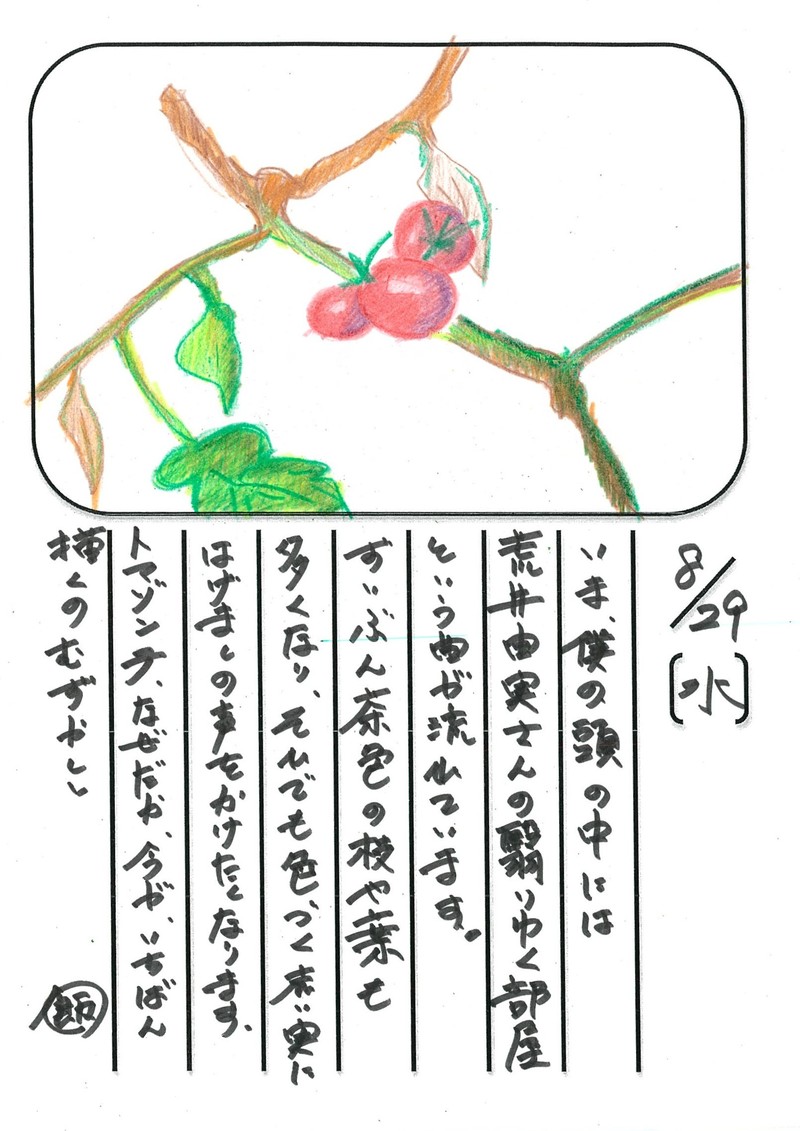 8/29
(水)
いま、僕の頭の中には
荒井由実さんの翳りゆく部屋
という曲が流れています。
ずいぶん茶色の枝や葉も
多くなり、それでも色づく赤い実に
はげましの声をかけたくなります。
トマゾンヌ、なぜだか、今が、いちばん
描くのむずかしい